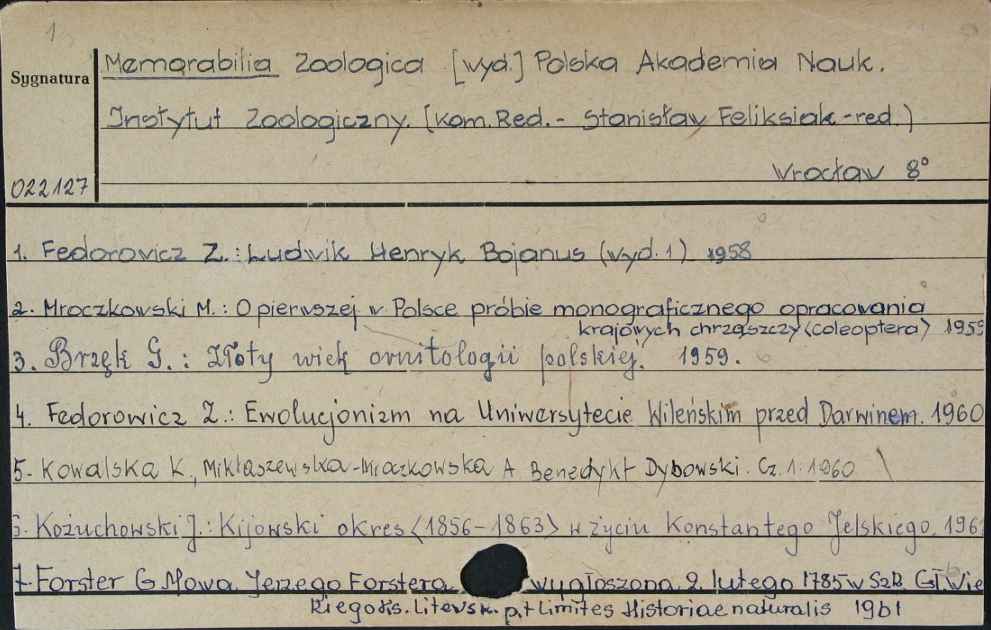 1
Memorabilia Zoologica [wyd.] Polska Akademia Nauk.
Sygnatura
Instytut Zoologiczny. [kom. Red. - Stanisław Feliksiak - red.)
Wrocław 8°
022127
1. Fedorowicz Z.: Ludwik Henryk Bojanus (wyd. 1) 1958
2. Mroczkowski M.: O pierwszej w Polsce próbie monograficznego opracowania
krajowych chrząszczy (coleoptera) 1959
3. Brzęk G.: Złoty wiek ornitologii polskiej. 1959.
4. Fedorowicz Z.: Ewolucjonizm na Uniwersytecie Wileńskim przed Darwinem. 1960
5. Kowalska K., Mikłaszewska-Mroczkowska A. Benedykt Dybowski. Cz. 1: 1960
6. Kożuchowski J.: Kijowski okres (1856-1863) w życiu Konstantego Jelskiego. 196
7. Forster G. Mowa Jerzego Forstera wygłoszona 2 lutego 1785 w Szk. Gł. Wie
Litewsk. p.t Limites Historiae naturalis 1961